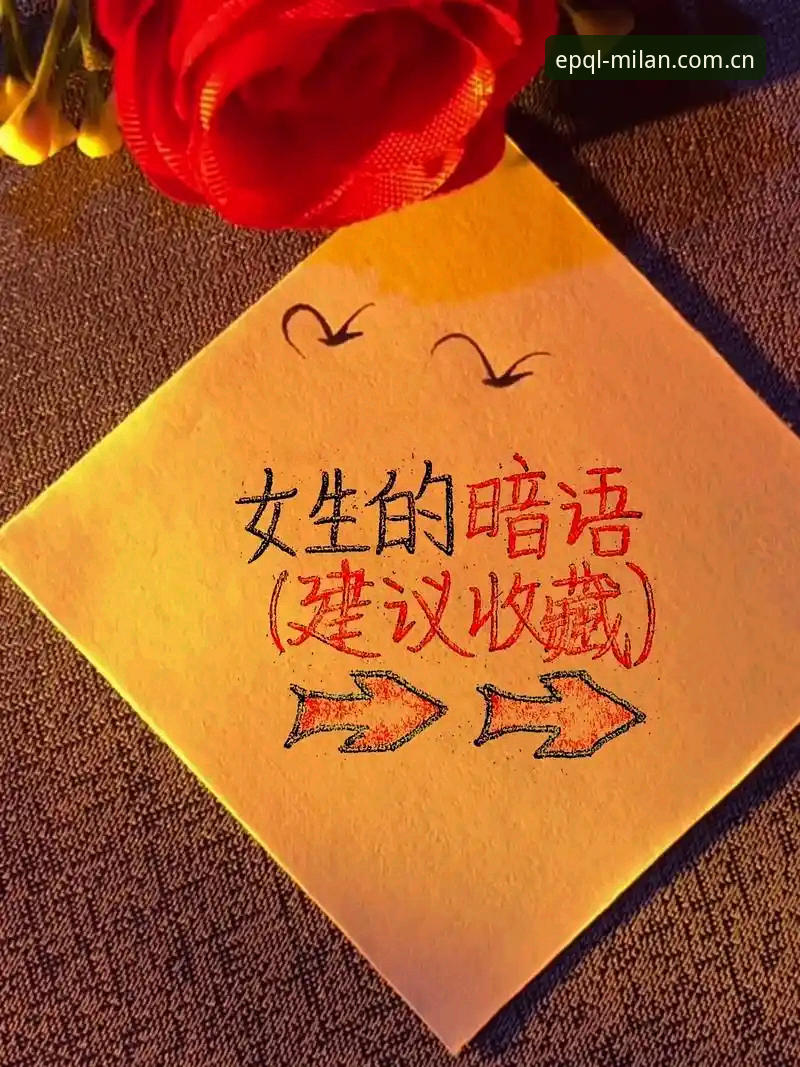 epql-milan.com.cn
女生的暗语
(建议收藏)